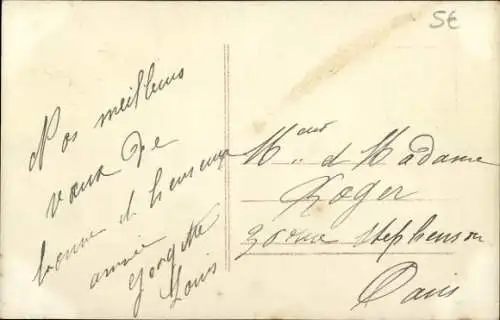 5€
Nos meilleurs
vœux de
bonne et heureuse
année
Georgette
Louis
Mr et Madame
Roger
20 rue Stephenson
Paris